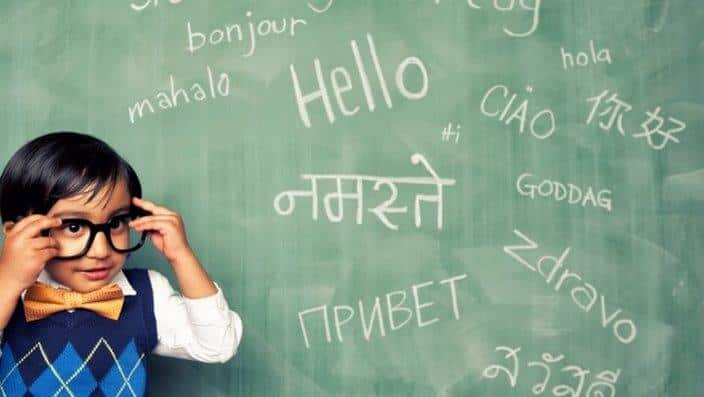 bonjour
hola
Hello
mahalo
CiAO
你好
Hi
नमस्ते
GODDAG
Zdravo
ПРИВЕТ
สวัสดี